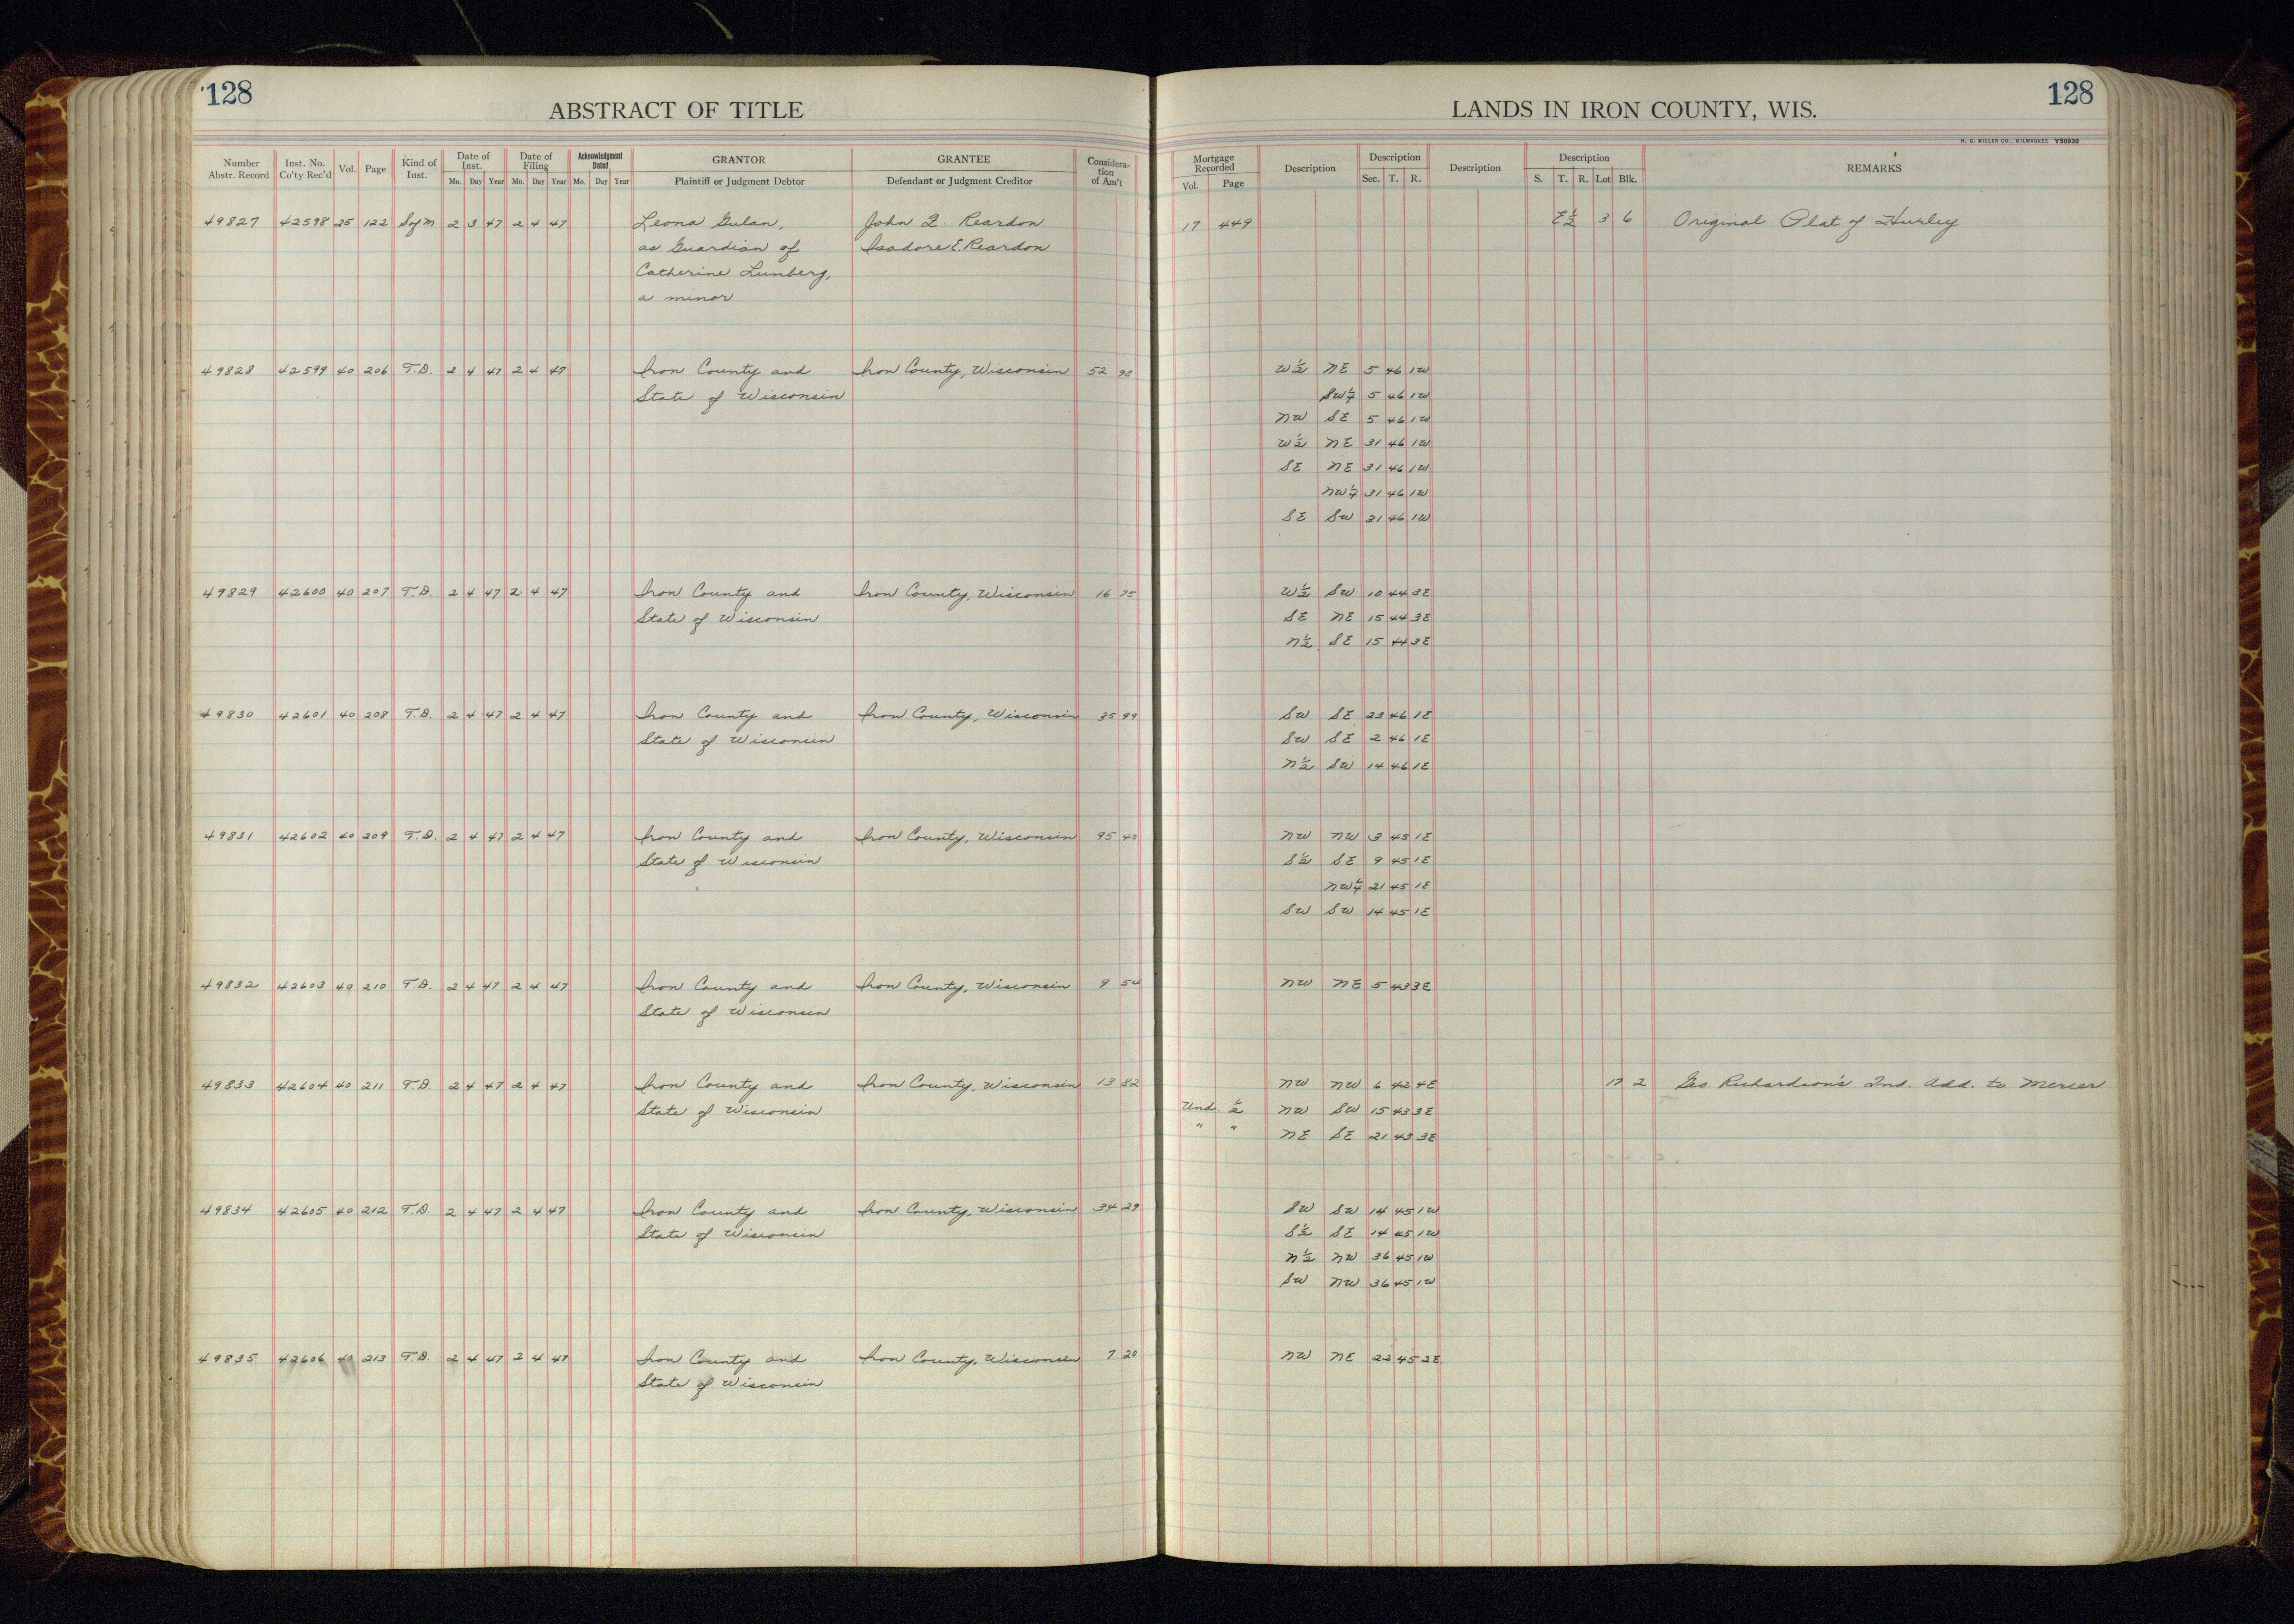 128
ABSTRACT OF TITLE
LANDS IN IRON COUNTY, WIS.
128
H. C. MILLER CO., MILWAUKEE Y50930
Number Abstr. Record | Inst. No. Co'ty Rec'd | Vol. | Page | Kind of Inst. | Date of Inst. Mo. Day Year | Date of Filing Mo. Day Year | Acknowledgment Dated Mo. Day Year | GRANTOR Plaintiff or Judgment Debtor | GRANTEE Defendant or Judgment Creditor | Considera-tion of Am't | Mortgage Recorded Vol. Page | Description | Description Sec. T. R. | Description | Description S. T. R. Lot Blk. | REMARKS
49827 42598 25 122 S of M 2 3 47 2 4 47 Leona Gulan, John Reardon 17 449 E½ 3 6 Original Plat of Hurley
as Guardian of Isadore E. Reardon
Catherine Lunberg,
a minor
49828 42599 40 206 T.D. 2 4 47 2 4 47 Iron County and Iron County, Wisconsin 52 98 W½ NE 5 46 1W
State of Wisconsin SW¼ 5 46 1W
NW SE 5 46 1W
W½ NE 31 46 1W
SE NE 31 46 1W
NW¼ 31 46 1W
SE SW 31 46 1W
49829 42600 40 207 T.D. 2 4 47 2 4 47 Iron County and Iron County, Wisconsin 16 75 W½ SW 10 44 3E
State of Wisconsin SE NE 15 44 3E
N½ SE 15 44 3E
49830 42601 40 208 T.D. 2 4 47 2 4 47 Iron County and Iron County, Wisconsin 35 99 SW SE 23 46 1E
State of Wisconsin SW SE 2 46 1E
N½ SW 14 46 1E
49831 42602 40 209 T.D. 2 4 47 2 4 47 Iron County and Iron County, Wisconsin 95 40 NW NW 3 45 1E
State of Wisconsin S½ SE 9 45 1E
NW¼ 21 45 1E
SW SW 14 45 1E
49832 42603 40 210 T.D. 2 4 47 2 4 47 Iron County and Iron County, Wisconsin 9 54 NW NE 5 43 3E
State of Wisconsin
49833 42604 40 211 T.D. 2 4 47 2 4 47 Iron County and Iron County, Wisconsin 13 82 NW NW 6 42 4E 2 Geo. Richardson's 2nd. Add. to Mercer
State of Wisconsin Und. ½ NW SW 15 43 3E
" " NE SE 21 43 3E
49834 42605 40 212 T.D. 2 4 47 2 4 47 Iron County and Iron County, Wisconsin 34 29 SW SW 14 45 1W
State of Wisconsin S½ SE 14 45 1W
N½ NW 36 45 1W
SW NW 36 45 1W
49835 42606 40 213 T.D. 2 4 47 2 4 47 Iron County and Iron County, Wisconsin 7 20 NW NE 22 45 2E
State of Wisconsin